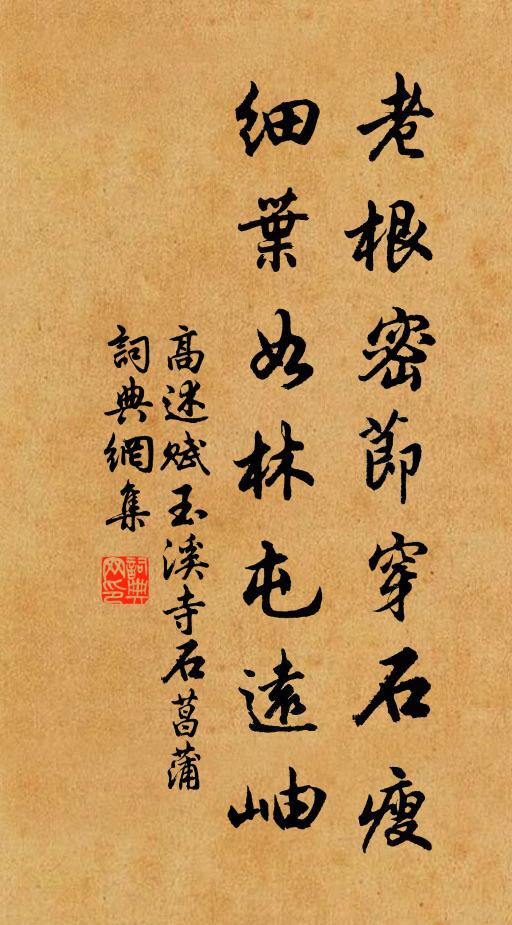 老根密節穿石瘦
細葉如林屯遠岫
高述賦玉溪寺石菖蒲
詞典網集
詞典網印